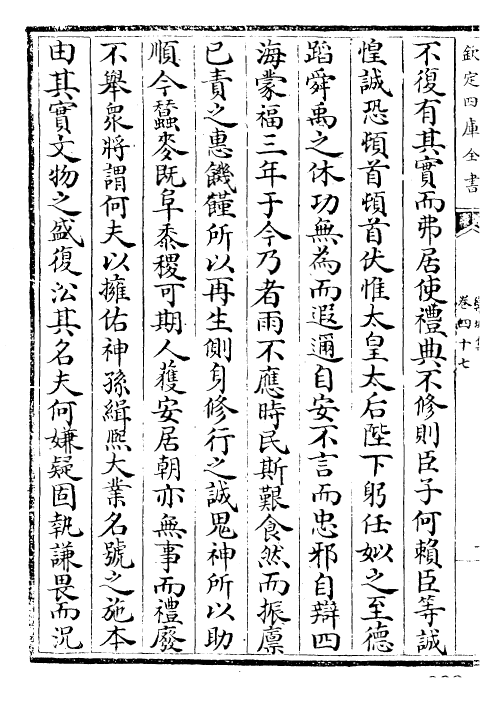 欽定四庫全書
卷四十七
不復有其實而弗居使禮典不修則臣子何賴臣等誠
惶誠恐頓首頓首伏惟太皇太后陛下躬任姒之至德
蹈舜禹之休功無為而遐邇自安不言而忠邪自辯四
海蒙福三年于今乃者雨不應時民斯艱食然而振廪
已責之惠饑饉所以再生側身修行之誠鬼神所以助
順今蠶麥既阜黍稷可期人獲安居朝亦無事而禮廢
不舉衆將謂何夫以擁佑神孫緝熈大業名號之施本
由其實文物之盛復㳂其名夫何嫌疑固執謙畏而况